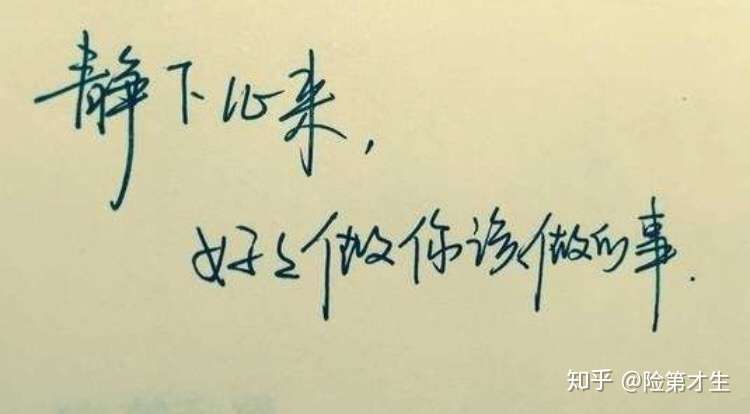 静下心来,
好好做你该做的事.
知乎 @险第才生